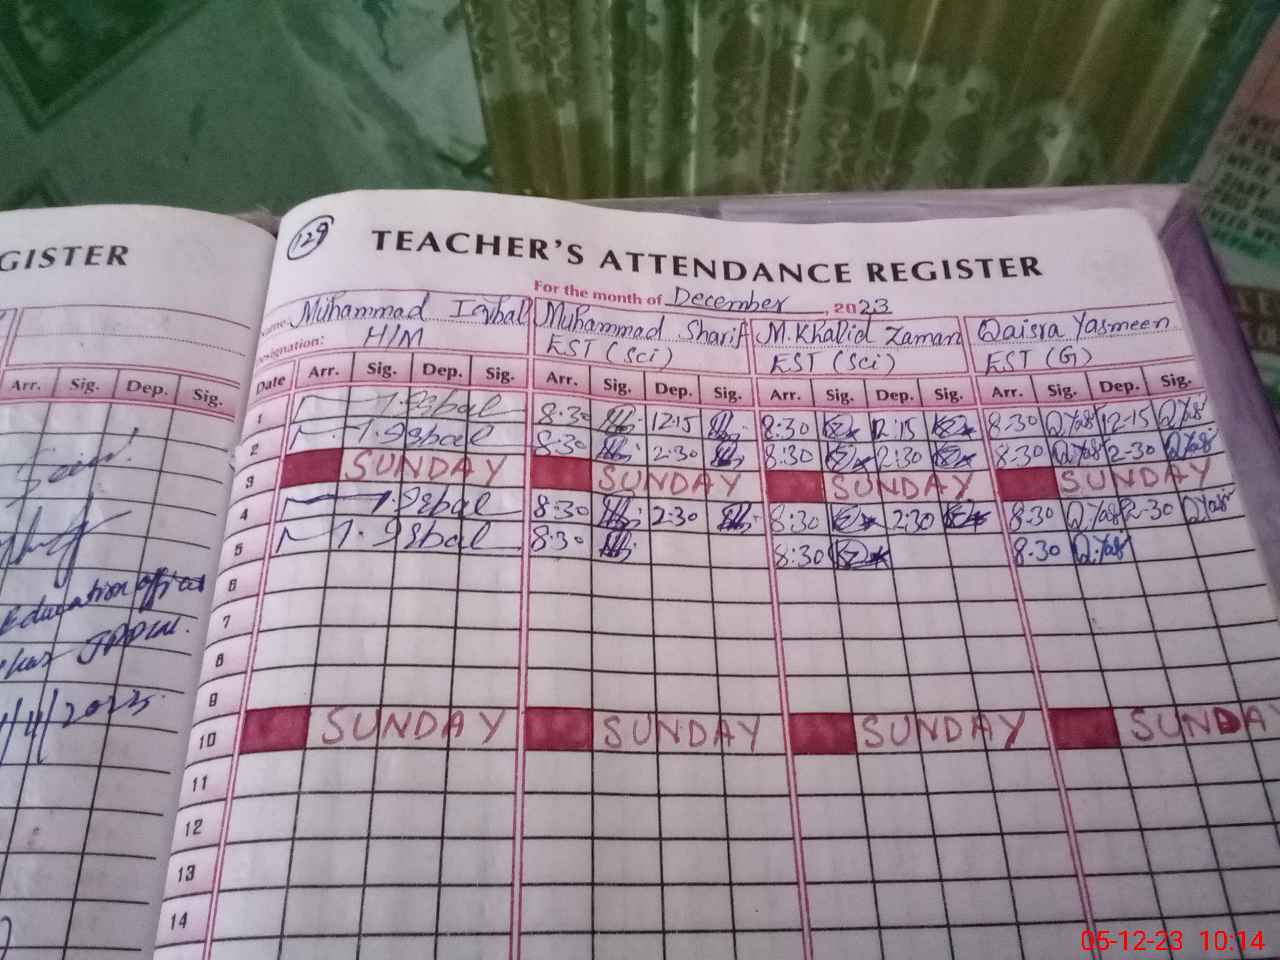 GISTER
Arr. Sig. Dep. Sig.
Education
2023.
129
TEACHER'S ATTENDANCE REGISTER
For the month of December, 2023
Name: Muhammad Iqbal Muhammad Sharif M.Khalid Zaman Qaisra Yasmeen.
Designation: H/M EST (Sci) EST (Sci) EST (G)
Date Arr. Sig. Dep. Sig. Arr. Sig. Dep. Sig. Arr. Sig. Dep. Sig. Arr. Sig. Dep. Sig.
1 M.Iqbal 8:30 12:15 8:30 12:15 8:30 Q.Yas 12-15 Q.Yas
2 M.Iqbal 8:30 2:30 8:30 2:30 8:30 Q.Yas 2-30 Q.Yas
3 SUNDAY SUNDAY SUNDAY SUNDAY
4 M.Iqbal 8:30 2:30 8:30 2:30 8:30 Q.Yas 2-30 Q.Yas
5 M.Iqbal 8:30 8:30 8-30 Q.Yas
6
7
8
9
10 SUNDAY SUNDAY SUNDAY SUNDAY
11
12
13
14
05-12-23 10:14